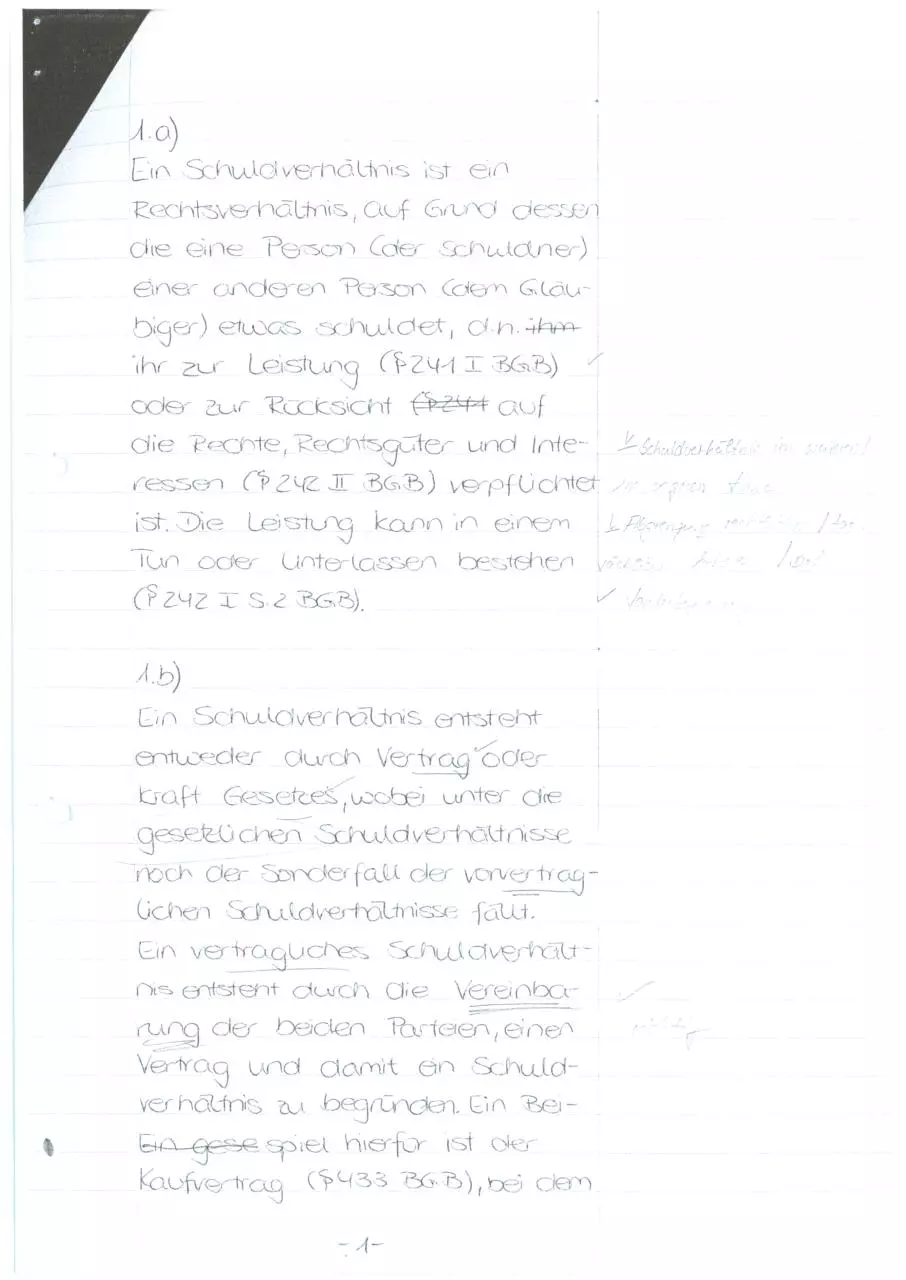 1.a)
Ein Schuldverhältnis ist ein
Rechtsverhältnis, auf Grund dessen
die eine Person (der Schuldner)
einer anderen Person (dem Gläu-
biger) etwas schuldet, d.h. ihm
ihr zur Leistung (§241 I BGB) ✓
oder zur Rücksicht (§241 auf
die Rechte, Rechtsgüter und Inte-
ressen (§242 II BGB) verpflichtet
ist. Die Leistung kann in einem
Tun oder Unterlassen bestehen
(§242 I S.2 BGB).
Schuldverhältnis im weiteren/
✓
1.b)
Ein Schuldverhältnis entsteht
entweder durch Vertrag ✓ oder
kraft Gesetzes, wobei unter die
gesetzlichen Schuldverhältnisse
noch der Sonderfall der vorvertrag-
lichen Schuldverhältnisse fällt.
Ein vertragliches Schuldverhält-
nis entsteht durch die Vereinba-
rung der beiden Parteien, einen
Vertrag und damit ein Schuld-
verhältnis zu begründen. Ein Bei-
Ein gese spiel hierfür ist der
Kaufvertrag (§433 BGB), bei dem
✓
- 1 -